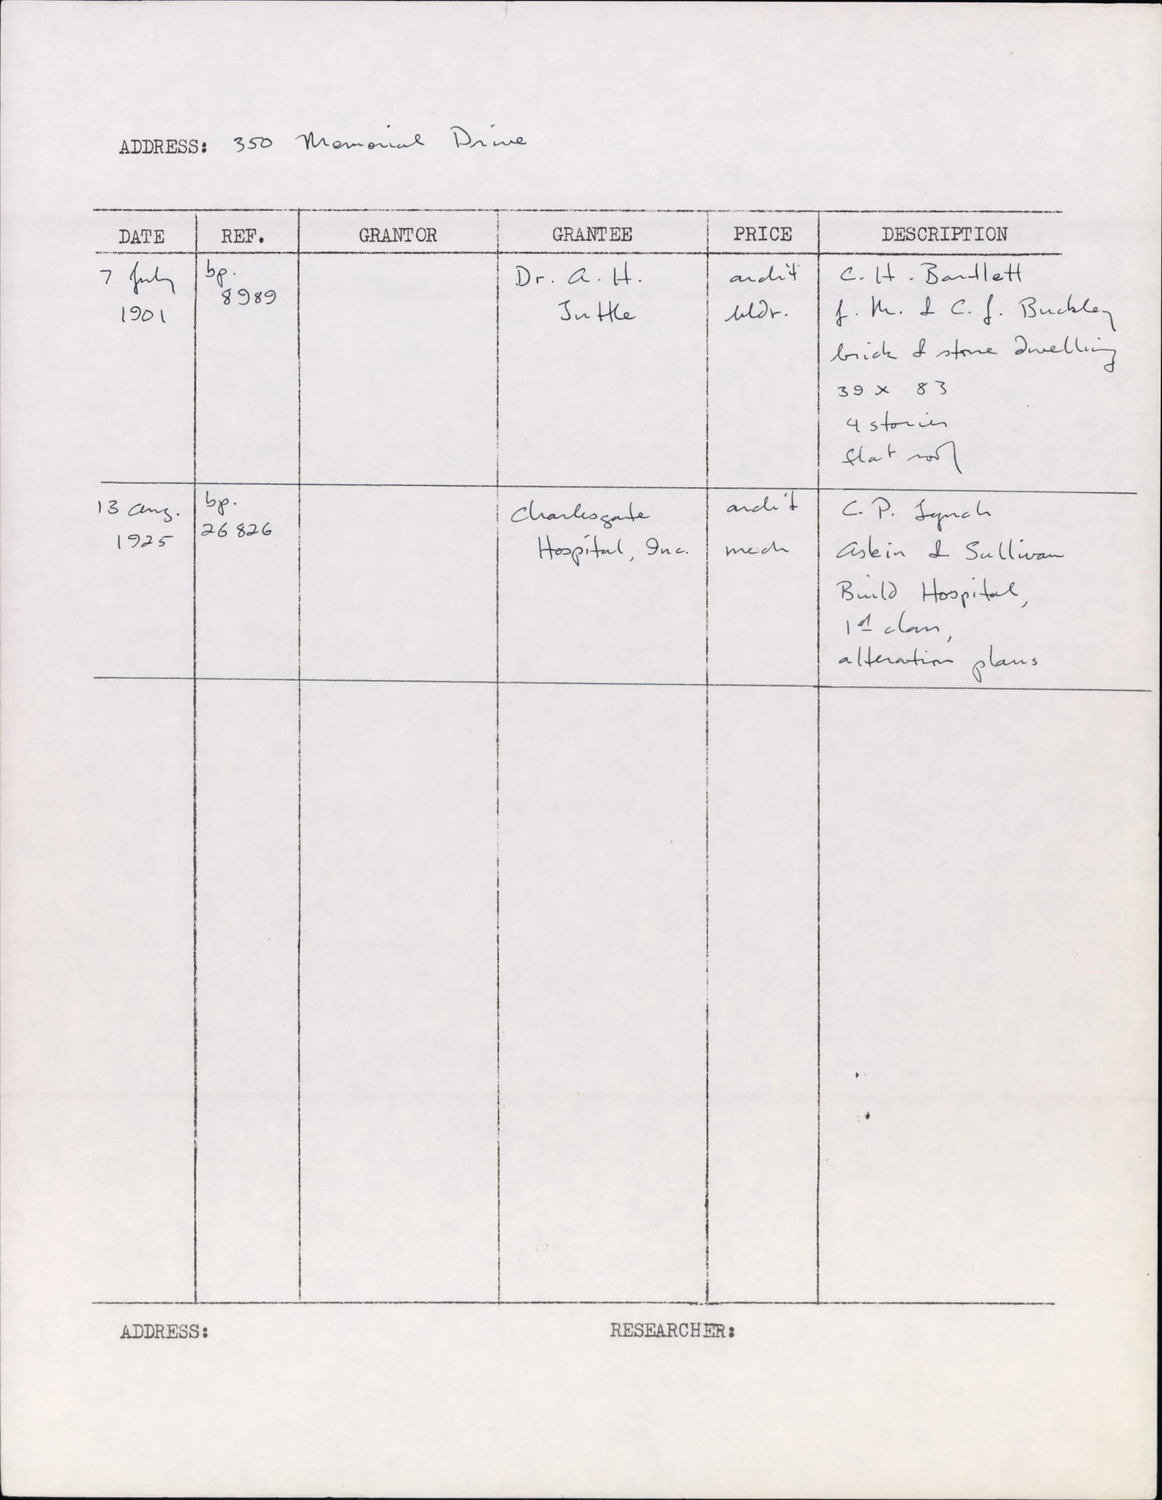 ADDRESS: 350 Memorial Drive
DATE REF. GRANTOR GRANTEE PRICE DESCRIPTION
7 July bp. Dr. A. H. archit C. H. Bartlett
1901 8989 Tuttle bldr. J. M. & C. J. Buckley
brick & stone dwelling
39 x 83
4 stories
flat roof
13 Aug. bp. Charlesgate archit C. P. Lynch
1925 26826 Hospital, Inc. mech Askin & Sullivan
Build Hospital,
1st class,
alteration plans
ADDRESS: RESEARCHER: